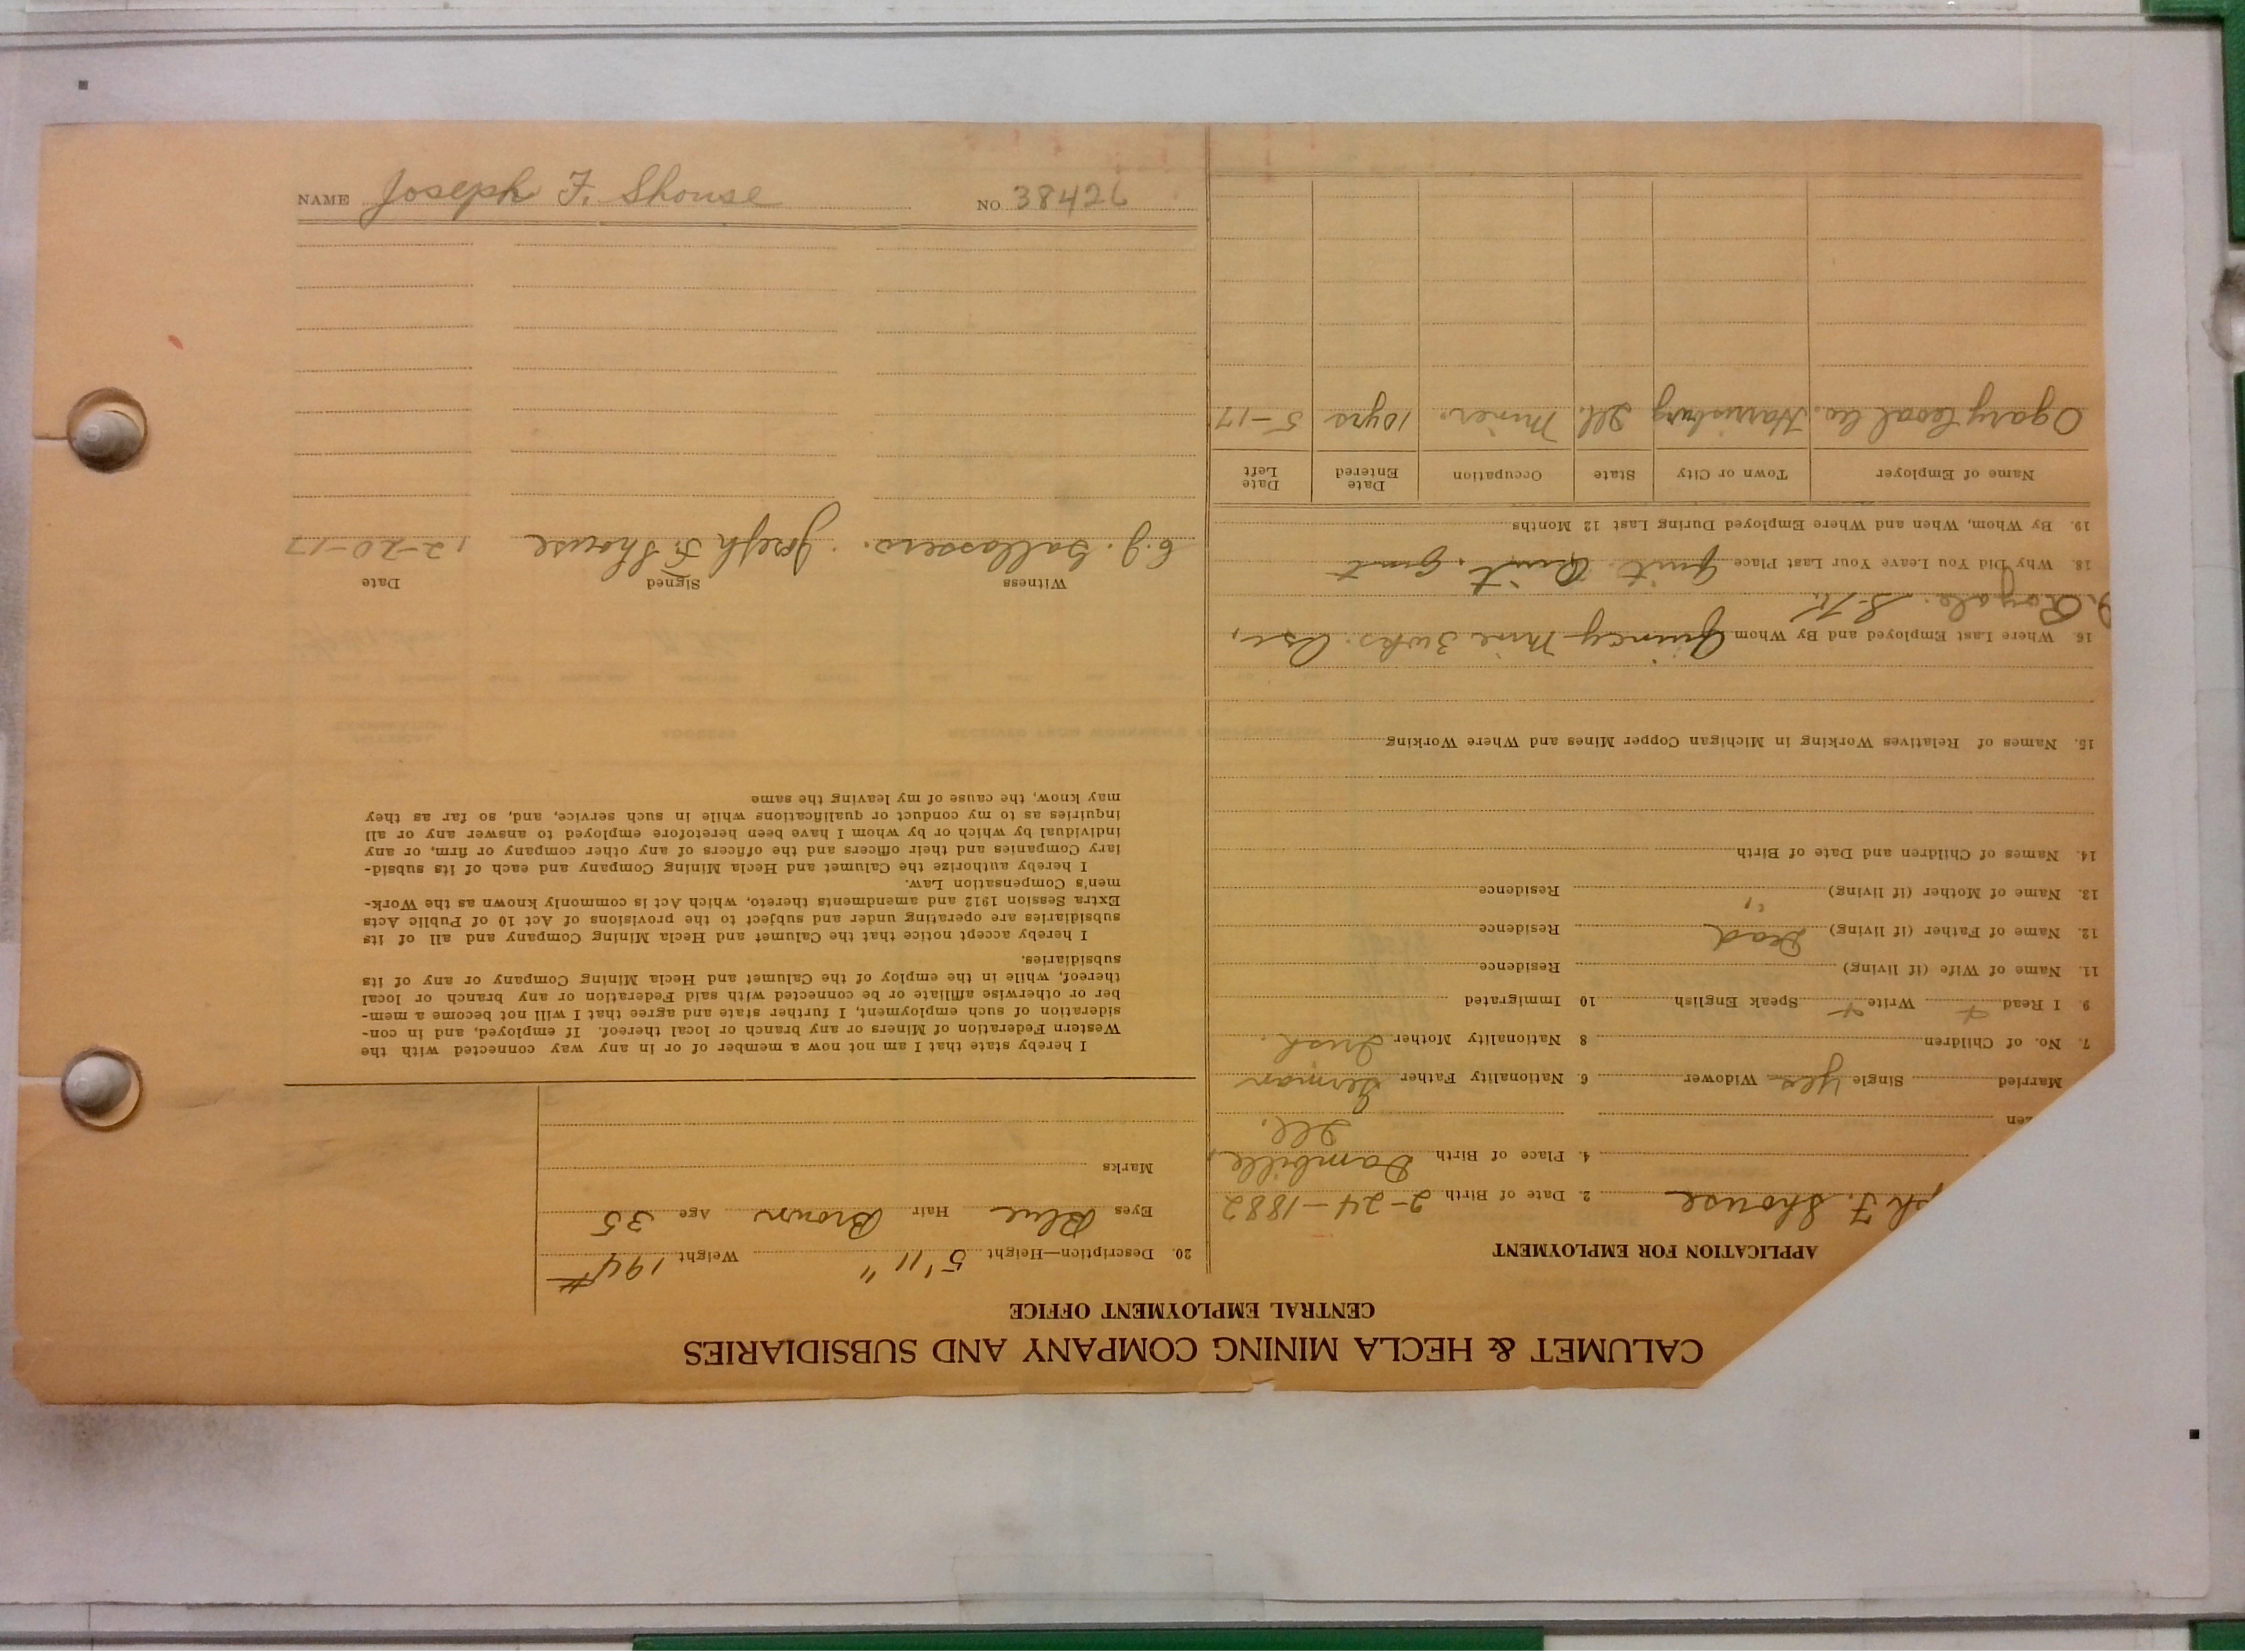 CALUMET & HECLA MINING COMPANY AND SUBSIDIARIES
CENTRAL EMPLOYMENT OFFICE
APPLICATION FOR EMPLOYMENT
ph F. Shouse 2. Date of Birth 2-24-1882
4. Place of Birth Dambille,
Ill.
zen
Married Single Yes Widower 6. Nationality Father German
7. No. of Children 8 Nationality Mother Irish.
9 I Read + Write + Speak English 10 Immigrated
11. Name of Wife (if living) Residence
12. Name of Father (if living) Dead Residence
13. Name of Mother (if living) " Residence
14. Names of Children and Date of Birth
15. Names of Relatives Working in Michigan Copper Mines and Where Working
16. Where Last Employed and By Whom Quincy Mine 3 wks.
Royale.
18. Why Did You Leave Your Last Place Quit Quit. Quit
19. By Whom, When and Where Employed During Last 12 Months
Name of Employer Town or City State Occupation Date Entered Date Left
Ogary Coal Co. Harrisburg Ill. Miner. 10 yrs 5-17
20. Description—Height 5'11" Weight 194#
Eyes Blue Hair Brown Age 35
Marks
I hereby state that I am not now a member of or in any way connected with the
Western Federation of Miners or any branch or local thereof. If employed, and in con-
sideration of such employment, I further state and agree that I will not become a mem-
ber or otherwise affiliate or be connected with said Federation or any branch or local
thereof, while in the employ of the Calumet and Hecla Mining Company or any of its
subsidiaries.
I hereby accept notice that the Calumet and Hecla Mining Company and all of its
subsidiaries are operating under and subject to the provisions of Act 10 of Public Acts
Extra Session 1912 and amendments thereto, which Act is commonly known as the Work-
men's Compensation Law.
I hereby authorize the Calumet and Hecla Mining Company and each of its subsid-
iary Companies and their officers and the officers of any other company or firm, or any
individual by which or by whom I have been heretofore employed to answer any or all
inquiries as to my conduct or qualifications while in such service, and, so far as they
may know, the cause of my leaving the same
Witness Signed Date
Joseph F. Shouse 12-20-17
NAME Joseph F. Shouse NO. 38426